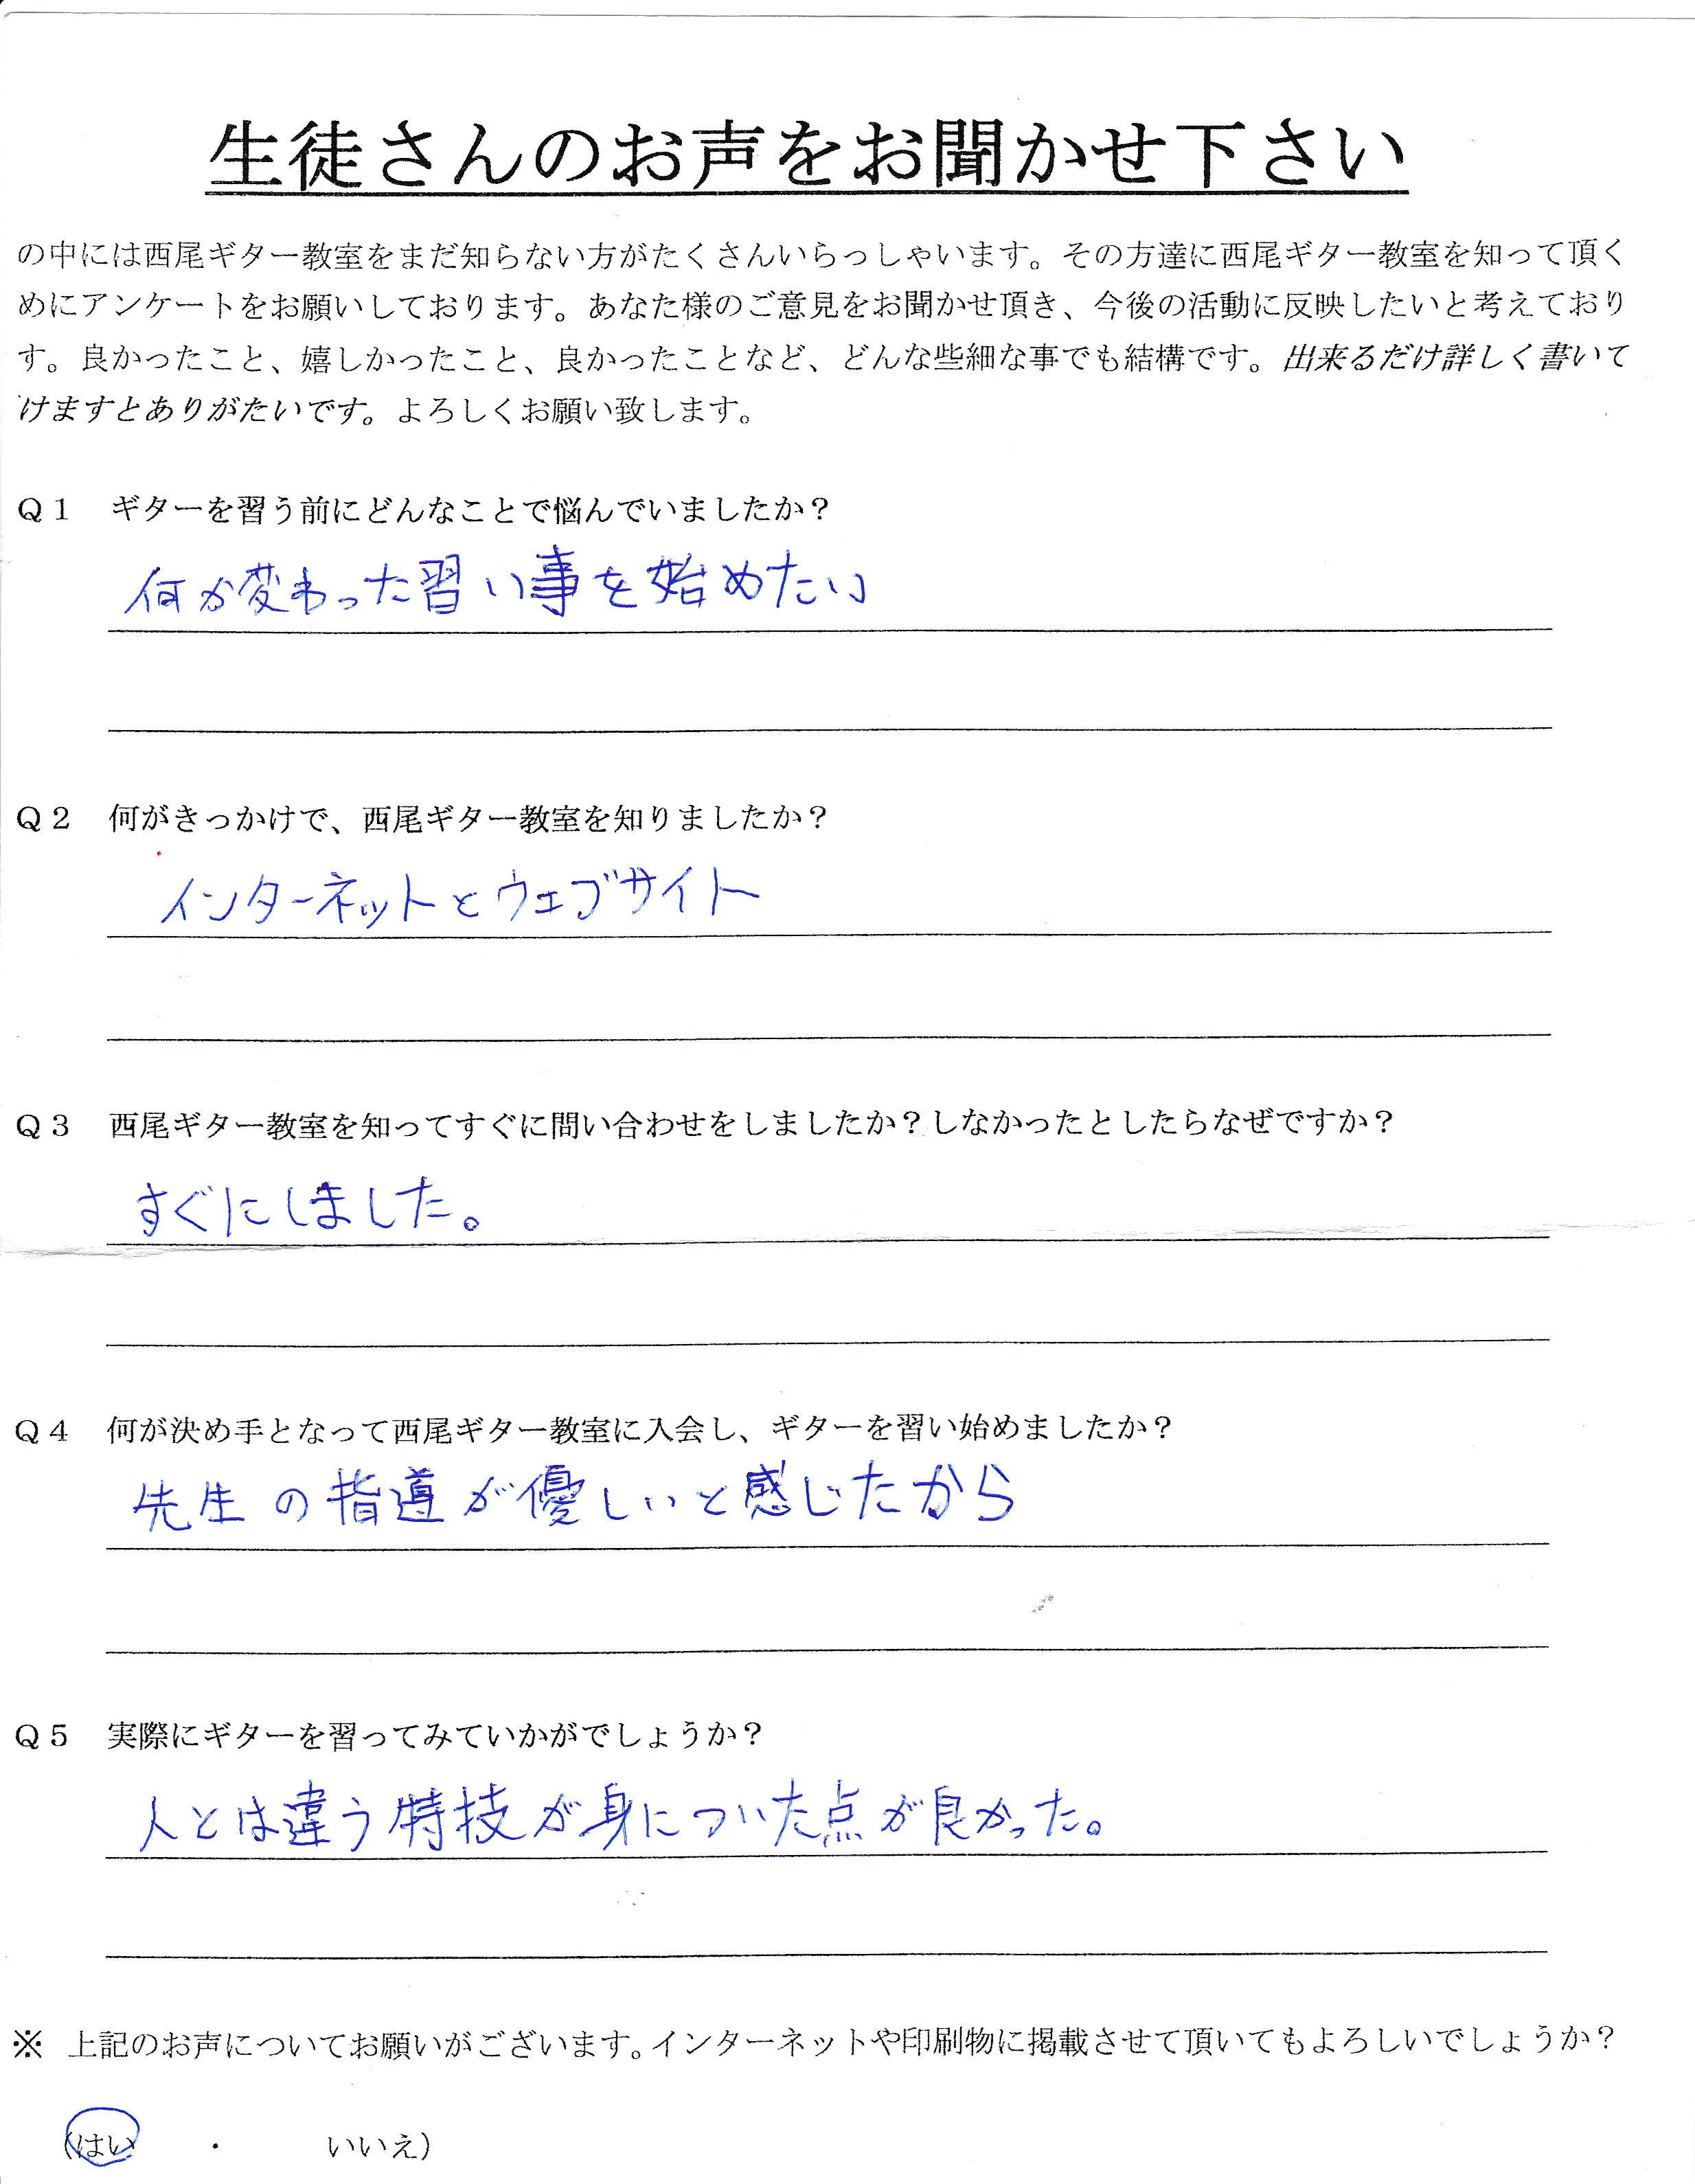 生徒さんのお声をお聞かせ下さい
の中には西尾ギター教室をまだ知らない方がたくさんいらっしゃいます。その方達に西尾ギター教室を知って頂く
めにアンケートをお願いしております。あなた様のご意見をお聞かせ頂き、今後の活動に反映したいと考えており
す。良かったこと、嬉しかったこと、良かったことなど、どんな些細な事でも結構です。出来るだけ詳しく書いて
けますとありがたいです。よろしくお願い致します。
Q1 ギターを習う前にどんなことで悩んでいましたか?
何か変わった習い事を始めたい
Q2 何がきっかけで、西尾ギター教室を知りましたか?
インターネットとウェブサイト
Q3 西尾ギター教室を知ってすぐに問い合わせをしましたか?しなかったとしたらなぜですか?
すぐにしました。
Q4 何が決め手となって西尾ギター教室に入会し、ギターを習い始めましたか?
先生の指導が優しいと感じたから
Q5 実際にギターを習ってみていかがでしょうか?
人とは違う特技が身についた点が良かった。
※ 上記のお声についてお願いがございます。インターネットや印刷物に掲載させて頂いてもよろしいでしょうか?
(はい ・ いいえ)